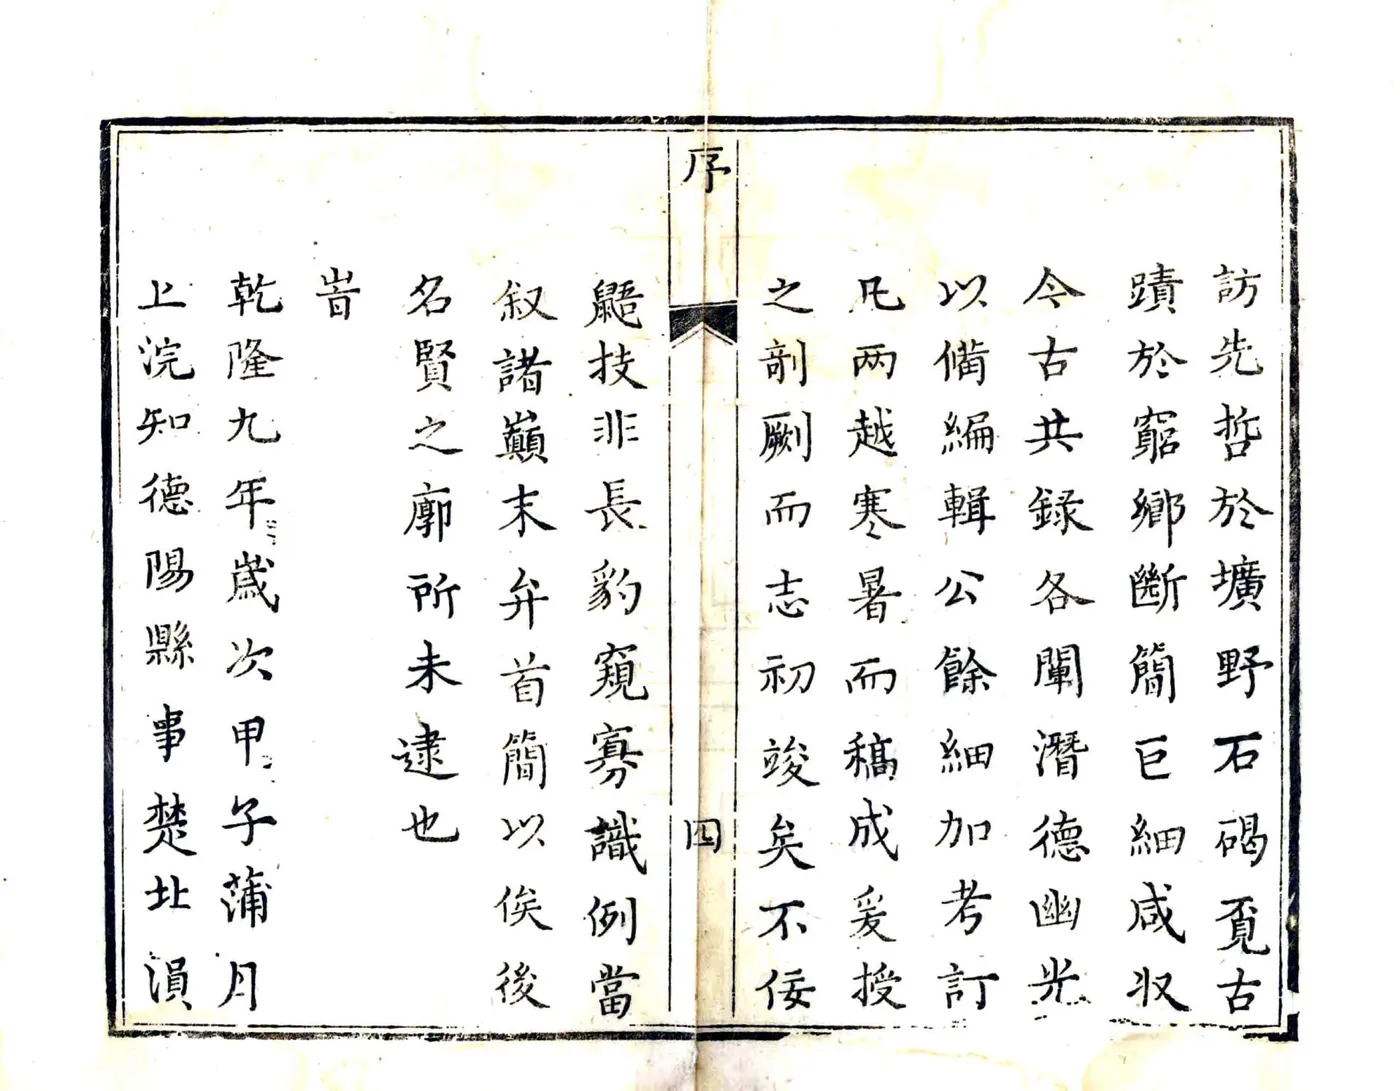 訪先哲於壙野石碣覓古
蹟於窮鄉斷簡巨細咸収
今古共録各闡潛德幽光
以備編輯公餘細加考訂
凡两越寒暑而稿成爰授
之剞劂而志初竣矣不佞
序
四
鼯技非長豹窺寡識例當
叙諸巔末弁首簡以俟後
名賢之廓所未逮也
旹
乾隆九年歲次甲子蒲月
上浣知德陽縣事楚北溳